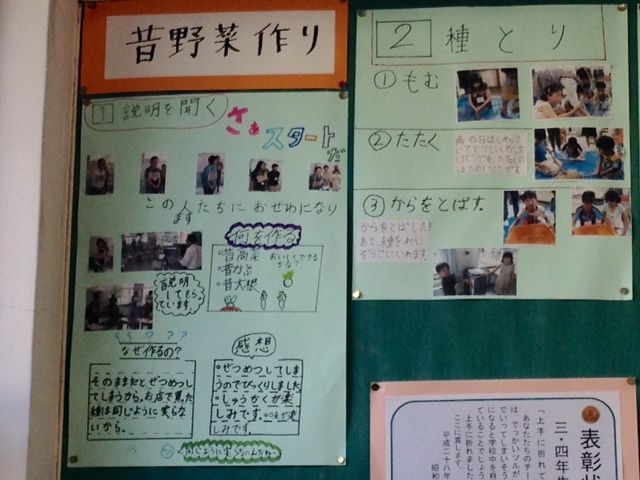 昔野菜作り
1 説明を聞く
さぁ
スタートだ
この人たちにおせわになり
ます
説明
してもら
ています。
何を作る
・昔高菜
・昔かぶ
・昔大根
おいしくできる
かな?
????
なぜ作るの?
そのままだとぜつめつし
てしまうから。お店で買った
種は同じように実らな
いから。
感想
・ぜつめつしてしま
うのでびっくりしました
・しゅうかくが楽
しみです。
しみです。
2 種とり
①もむ
②たたく
③からをとばす。
からをとばした
あと、種を
表彰状
三・四年生
「上手に折れて
あなたたちのチー
は、でっかいツルが
ていってしまいそう
になると学校中を自
ていることでしょう
上手に折れました
ここに賞します。
平成二十八年
昭和